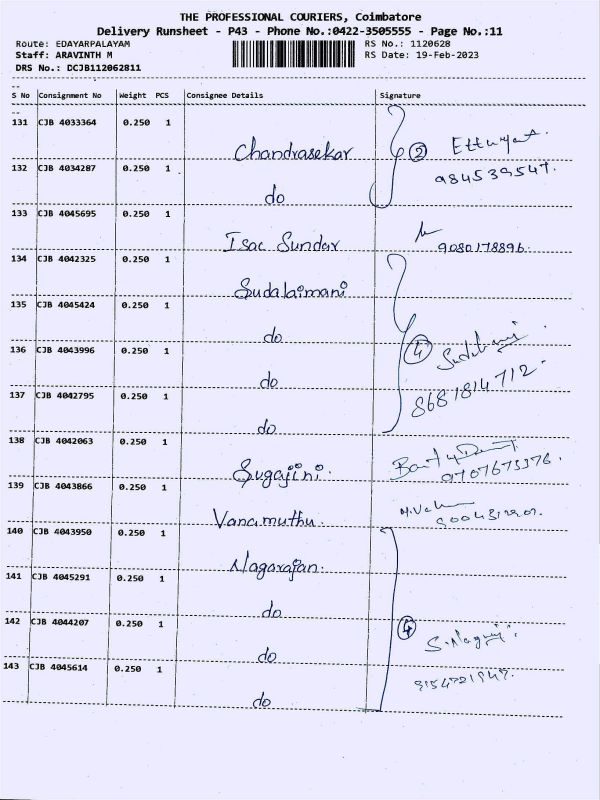 THE PROFESSIONAL COURIERS, Coimbatore
Delivery Runsheet - P43 - Phone No.:0422-3505555 - Page No.:11
Route: EDAYARPALAYAM
RS No.: 1120628
Staff: ARAVINTH M
RS Date: 19-Feb-2023
DRS No.: DCJB112062811
S No Consignment No Weight PCS Consignee Details Signature
131 CJB 4033364 0.250 1 Chandrasekar
2
132 CJB 4034287 0.250 1 do
984539547.
133 CJB 4045695 0.250 1 Isac Sundar
9080178896
134 CJB 4042325 0.250 1 Sudalaimani
135 CJB 4045424 0.250 1 do
4
136 CJB 4043996 0.250 1 do
8681814712.
137 CJB 4042795 0.250 1 do
138 CJB 4042063 0.250 1 Sugajini.
139 CJB 4043866 0.250 1 Vanamuthu.
140 CJB 4043950 0.250 1 Nagarajan.
141 CJB 4045291 0.250 1 do
142 CJB 4044207 0.250 1 do
4
143 CJB 4045614 0.250 1 do